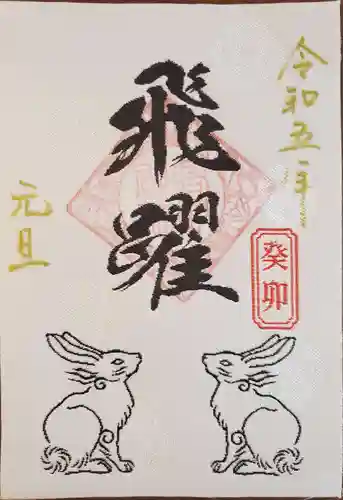 令和五年
飛躍
元旦
癸卯